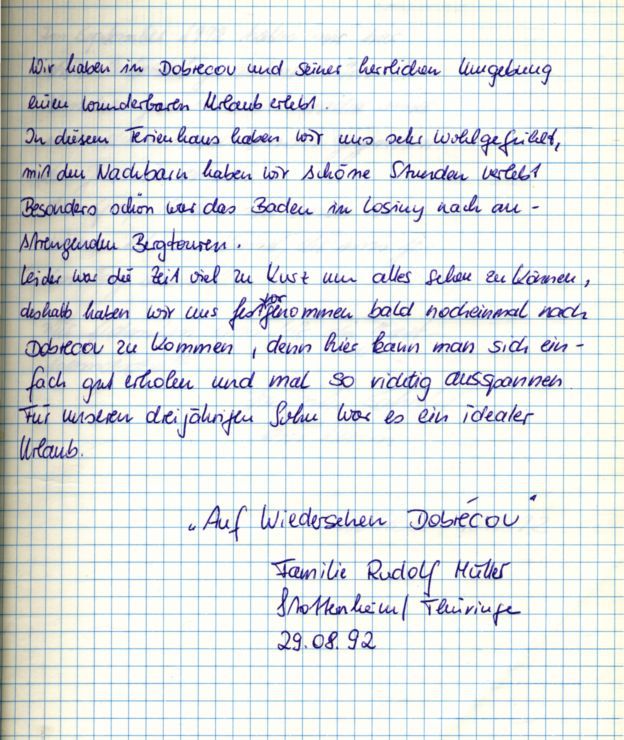 Wir haben in Dobrecov und seiner herrlichen Umgebung
einen wunderbaren Urlaub erlebt.
In diesem Ferienhaus haben wir uns sehr wohlgefühlt,
mit den Nachbarn haben wir schöne Stunden verlebt
Besonders schön war das Baden in Losiny nach an-
strengenden Bergtouren.
Leider war die Zeit viel zu kurz um alles sehen zu können,
deshalb haben wir uns fest vorgenommen bald nocheinmal nach
Dobrecov zu kommen, denn hier kann man sich ein-
fach gut erholen und mal so richtig ausspannen
Für unseren dreijährigen Sohn war es ein idealer
Urlaub.
„Auf Wiedersehen Dobrécov"
Familie Rudolf Müller
Thüringe
29.08.92